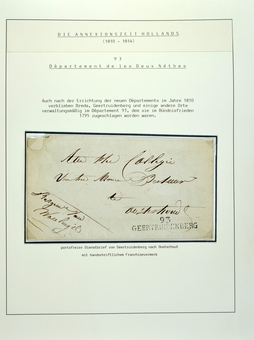 DIE ANNEXIONSZEIT HOLLANDS
(1810 - 1814)
93
Département de les Deux Nèthes
Auch nach der Errichtung der neuen Départements im Jahre 1810
verblieben Breda, Geertruidenberg und einige andere Orte
verwaltungsmäßig im Département 93, dem sie im Bündnisfrieden
1795 zugeschlagen worden waren.
Aan het Collegie
Van den Heere Bestuur
te
Oosterhout
93
GEERTRUIDENBERG
portofreier Dienstbrief von Geertruidenberg nach Oosterhout
mit handschriftlichem Franchisevermerk